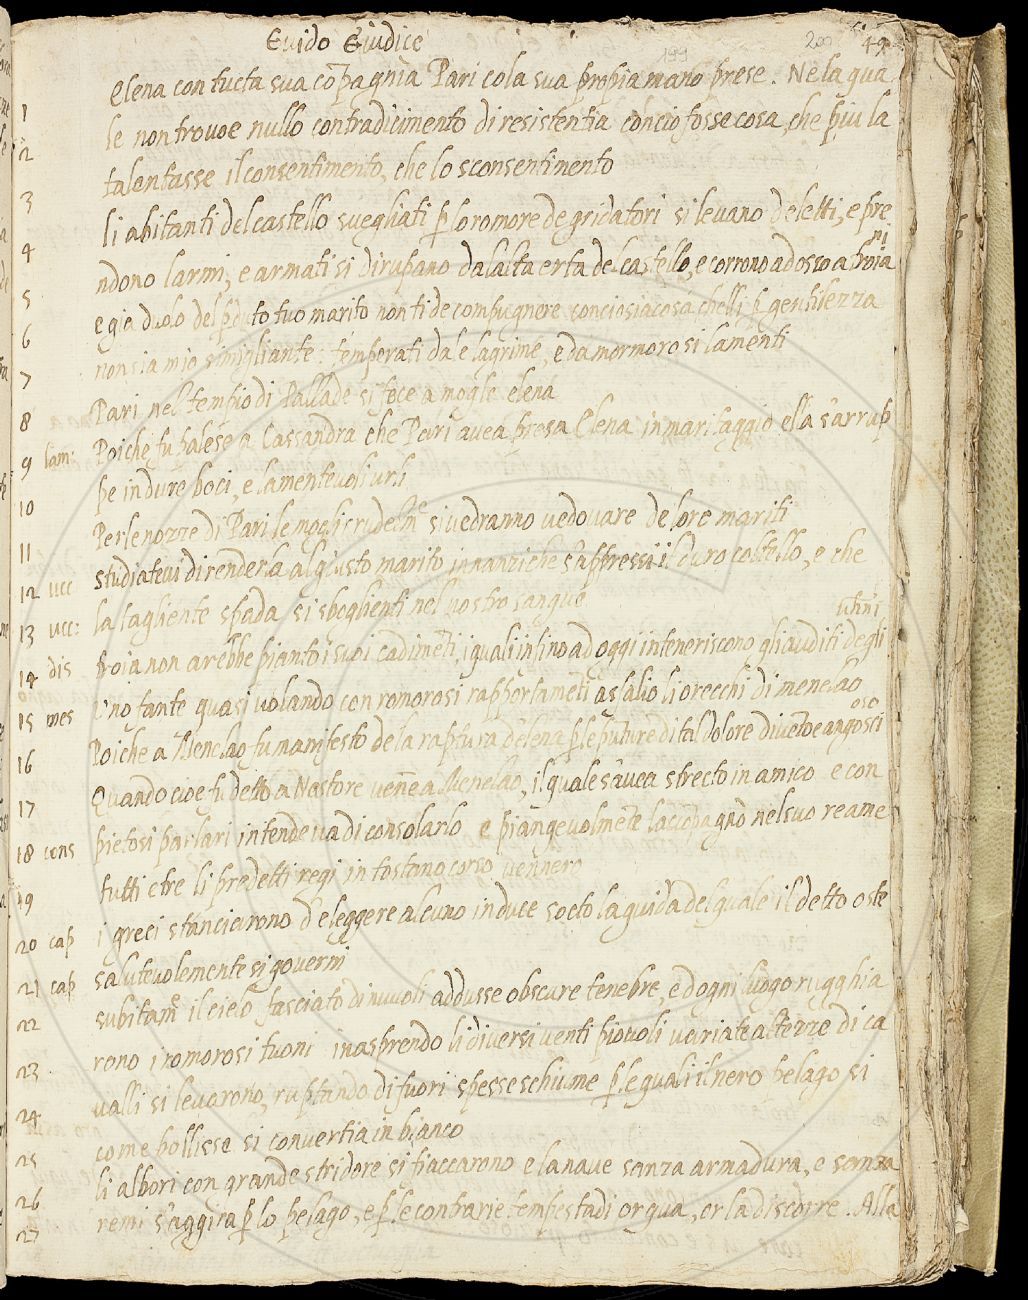 Guido Giudice
199 200 49
Elena con tucta sua cõpagnia Pari cola sua propia mano prese. Nela qua
1
le non trovoe nullo contradicimento di resistentia concio fosse cosa che piu la
2
talentasse il consentimento, che lo sconsentimento
3
li abitanti del castello svegliati p lo romore de gridatori si levano de letti, e pre
4
ndono larmi, e armati si dirupano da lalta erta del castello, e corrono adosso a troia
ni
5
e gia duolo del pduto tuo marito non ti de compugnere conciosiacosa chelli p gentilezza
6
non sia mio simigliante: temperati da le lagrime, e da mormoro si lamenti
7
Pari nel tempio di Pallade si fece a mogle elena
8
Poiche fu palese a Cassandra che Pari avea presa Elena in maritaggio ella s'arrup
9 lam:
pe in dure boci, e lamentevoli urli
10
Per le nozze di Pari le mogli crudelmẽ si vedranno vedovare de lore mariti
11
studiatevi di renderla al giusto marito innanzi che s'appressi il duro coltello, e che
12 ucc
la tagliente spada si sboglienti nel vostro sangue
13 ucc:
troia non arebbe pianto i suoi cadimẽti, i quali infino ad oggi inteneriscono gli auditi degli
uhni
14 dis
Uno fante quasi volando con romorosi rapportamẽti assalio li orecchi di menelao
15 mes
Poiche a Menelao fu manifesto de la raptura d'elena p le puture di tal dolore divẽtoe angosci
oso
16
Quando cioe fu detto a Nestore venne a Menelao, il quale s'avea strecto in amico e con
17
pietosi parlari intendeva di consolarlo e piangevolmẽte lacõpagnò nel suo reame
18 cons
tutti e tre li predetti regi in tostano corso vennero
19
i greci stanciarono d'eleggere alcuno in duce socto la guida del quale il detto oste
20 cap
salutevolemente si governi
21 cap
subitamẽ il cielo fasciato di nuvoli addusse obscure tenebre, e d ogni luogo rugghia
22
rono i romorosi tuoni inasprendo li diversi venti piovoli variate altezze di ca
23
valli si levarono, ruptando di fuori spesse schiume p le quali il nero pelago si
24
come bollisse si convertia in bianco
25
li albori con grande stridore si fiaccarono e la nave sanza armadura, e sanza
26
remi s'aggira p lo pelago, e p le contrarie tempestadi or qua, or la discorre. Alla
27